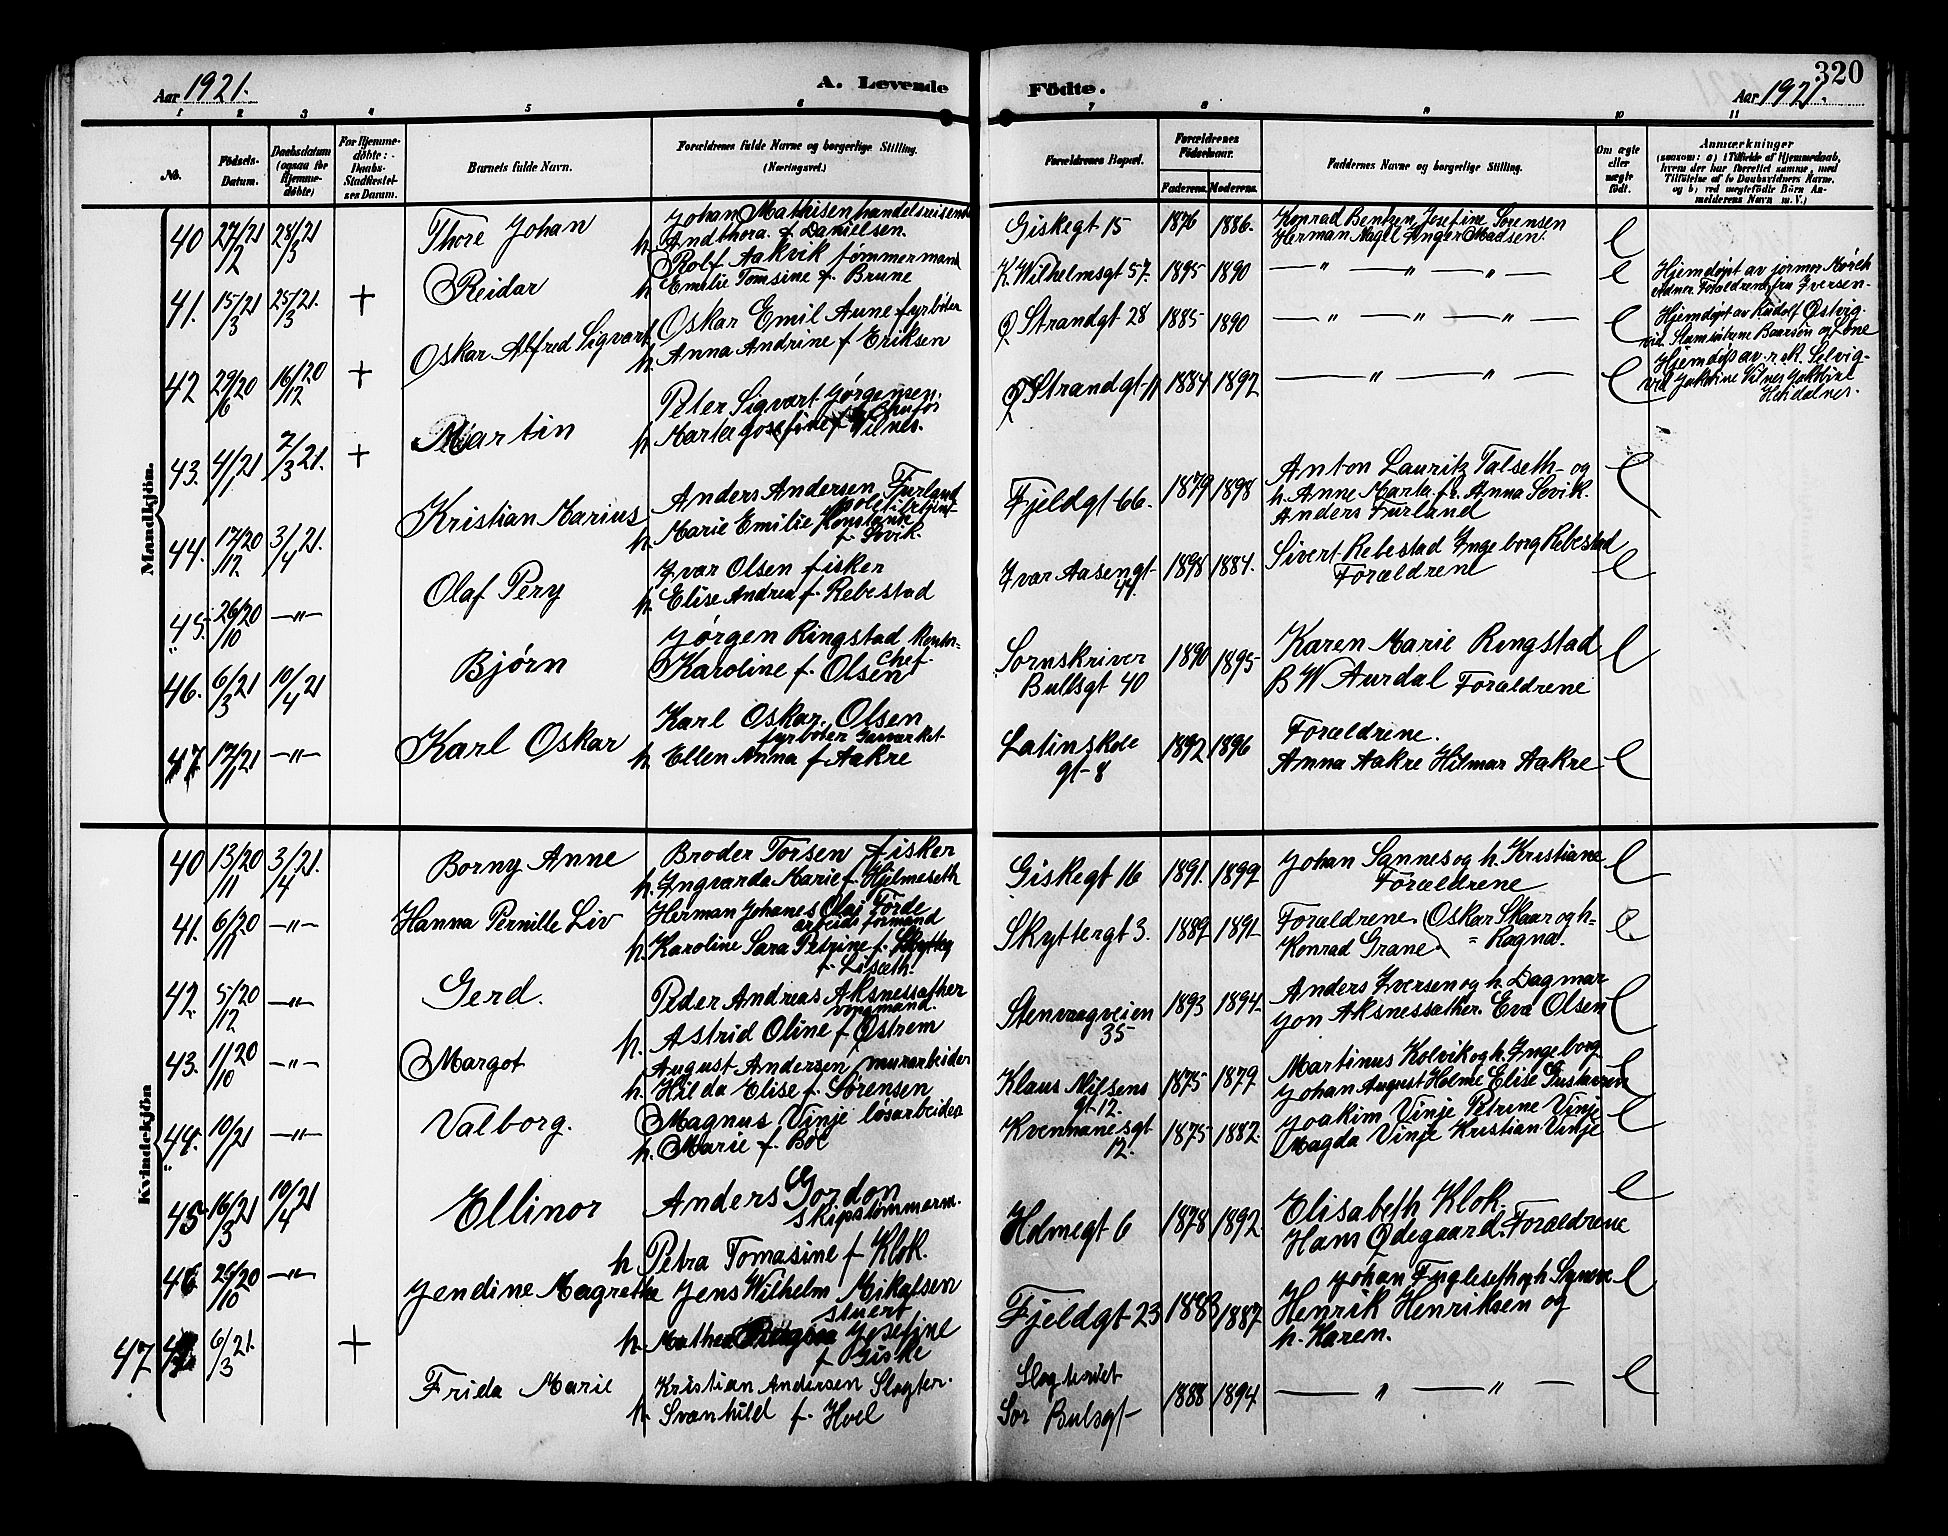 320
Aar 1921.
A. Levende Födte.
Aar 1921.
1 2 3 4 5 6 7 8 9 10 11
No.
Födsels-Datum.
Daabsdatum (ogsaa for Hjemme-döbte)
For Hjemme-döbte: Daabs-Stadfæstel-ses Datum.
Barnets fulde Navn.
Forældrenes fulde Navne og borgerlige Stilling. (Næringsvei.)
Forældrenes Bopæl.
Forældrenes Födselsaar.
Faderens. Moderens.
Faddernes Navne og borgerlige Stilling.
Om ægte eller uægte födt.
Anmærkninger
(saasom: a) i Tilfælde af Hjemmedaab, hvem der har forrettet samme, med Tilföielse af to Daabsvidners Navne, og b) ved uægtefödte Börn An-melderens Navn m. V.)
Mandkjön.
40 27/21 /2 28/21 /3 Thore Johan
Johan Mathisen handelsreisende
h. Andthora f. Danielsen.
Giskegt 15 1876 1886.
Konrad Bentzen Josefine Sørensen
Herman Nagel Inger Madsen.
41. 15/21 /3 25/21. /3 + Reidar
Rolf Aakvik tømmermand
h. Emilie Tomsine f. Brune
K. Wilhelmsgt 57. 1895 1890
— " — " — " —
Hjemdøpt av jormor Mørch
Foraldrene fru Iversen-
42 29/20 /6 16/20 /12 + Oskar Alfred Sigvart
Oskar Emil Aune fyrbøter
h. Anna Andrine f Eriksen
Ø Strandgt 28 1885 1890
— " — " — " — " —
Hjemdøpt av Rudolf Østvig-
43. 4/21 /1 2/21. /3 + Martin
Peter Sigvart Jørgensen.
h Marta Josefine f Vilnes.
Ø Strandgt 11 1884 1897
— " — " —
Hjemdøp av rek. Selvig-
ved Jakobine Vilnes Jakobine
Heidalnes.
44. 17/20 /12 3/21. /4 Kristian Marius
Anders Andersen Furland
h. Marie Emilie Konstanse
f. Sovik.
Fjeldgt 66. 1879 1898
Anton Lauritz Talseth- og
h. Anne Marta f. Anna Sovik.
Anders Furland
45. 26/20 /10 —"— Olaf Pery
Ivar Olsen fisker
h. Elise Andrea f. Rebestad
Ivar Aasengt 44. 1898 1884.
Sivert Rebestad Ingeborg Rebestad
Foraldrene
46. 6/21 /3 10/21 /4 Bjørn
Jørgen Ringstad Kontor-
chef
Karoline f. Olsen
Sornskriver
Bullsgt 40 1890 1895
Karen Marie Ringstad
B W Aurdal Foraldrene
47 17/21 /1 —"— Karl Oskar
Karl Oskar Olsen
fyrbøter Gasverket
h Ellen Anna f Aakre
Latinskole
gt-8 1892 1896
Foraldrene.
Anna Aakre Hilmar Aakre
Kvindekjön
40 13/20 /11 3/21. /4 Borny Anne
Broder Torsen fisker
h. Ingvarda Marie f. Hjelmeseth
Giskegt 16 1891. 1899
Johan Sannes og h. Kristiane
Foraldrene
41. 6/20 /11 —"— Hanna Pernille Liv
Herman Johanes Olai Förde
arbeidsformand
h Karoline Sara Petrine f.
f. Liseth.
Skyttergt 3. 1889 1891
Foraldrene Oskar Skaar og h=
Konrad Grane = Ragna.
42. 5/20 /12 —"— Gerd.
Peder Andreas Aksnessæther
vognmand.
h. Astrid Oline f Østrem
Stenvaagveien
35 1893 1894
Anders Iversen og h. Dagmar
Jon Aksnessæther. Eva Olsen
43. 11/20 /10 —"— Margot
August Andersen, murarbeider
h Hilda Elise f. Sørensen
Klaus Nilsens
gt 12. 1875 1879
Martinus Kolvik og h. Ingeborg
Johan August Holme Elise Gustavsen
44. 10/21 —"— Valborg.
Magnus Vinje løsarbeider
h. Marie f. Boe
Kvennanesgt
12. 1875 1882.
Joakim Vinje Petrine Vinje
Magda Vinje Kristian Vinje
45 16/21 /3 10/21 /4 Ellinor
Anders Gordon
skipstømmerm.
h Petra Tomasine f Klok.
Holmegt 6 1878 1892
Elisabeth Klok.
Hans Ødegaard. Foraldrene
46 26/20 /10 —"— Jendine Magretha
Jens Wilhelm Mikalsen
stuert
h. Mathea Josefine
f Giske
Fjeldgt 23 1883 1887
Johan Fugleseth og h Synøve
Henrik Henriksen og
h. Karen.
47 6/21. /3 + Frida Marie
Kristian Andersen Slogter.
h. Svanhild f. Hoel
Slogteriet
Sor Bulsgt 1888 1894
— " — " —